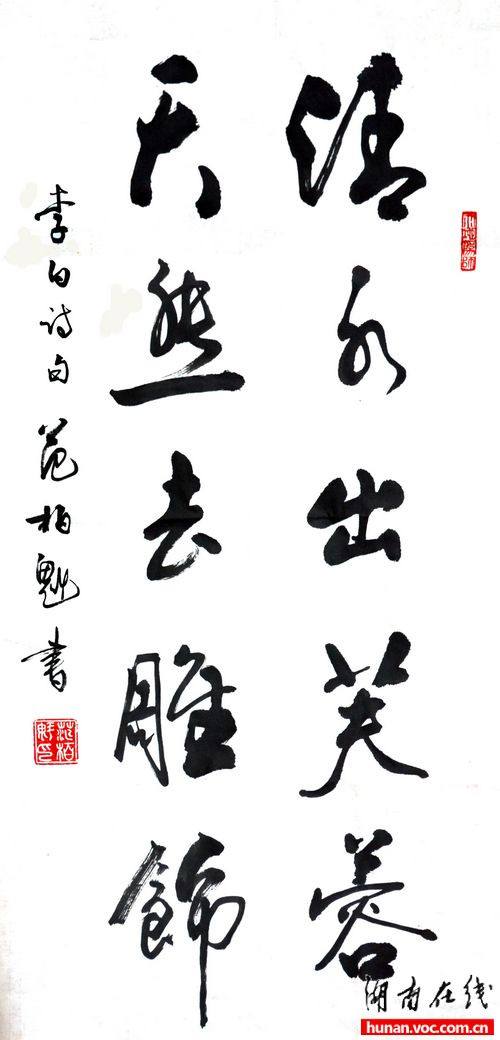 清水出芙蓉
天然去雕飾
李白诗句 范柏魁書
范柏魁印
湖南在线
hunan.voc.com.cn